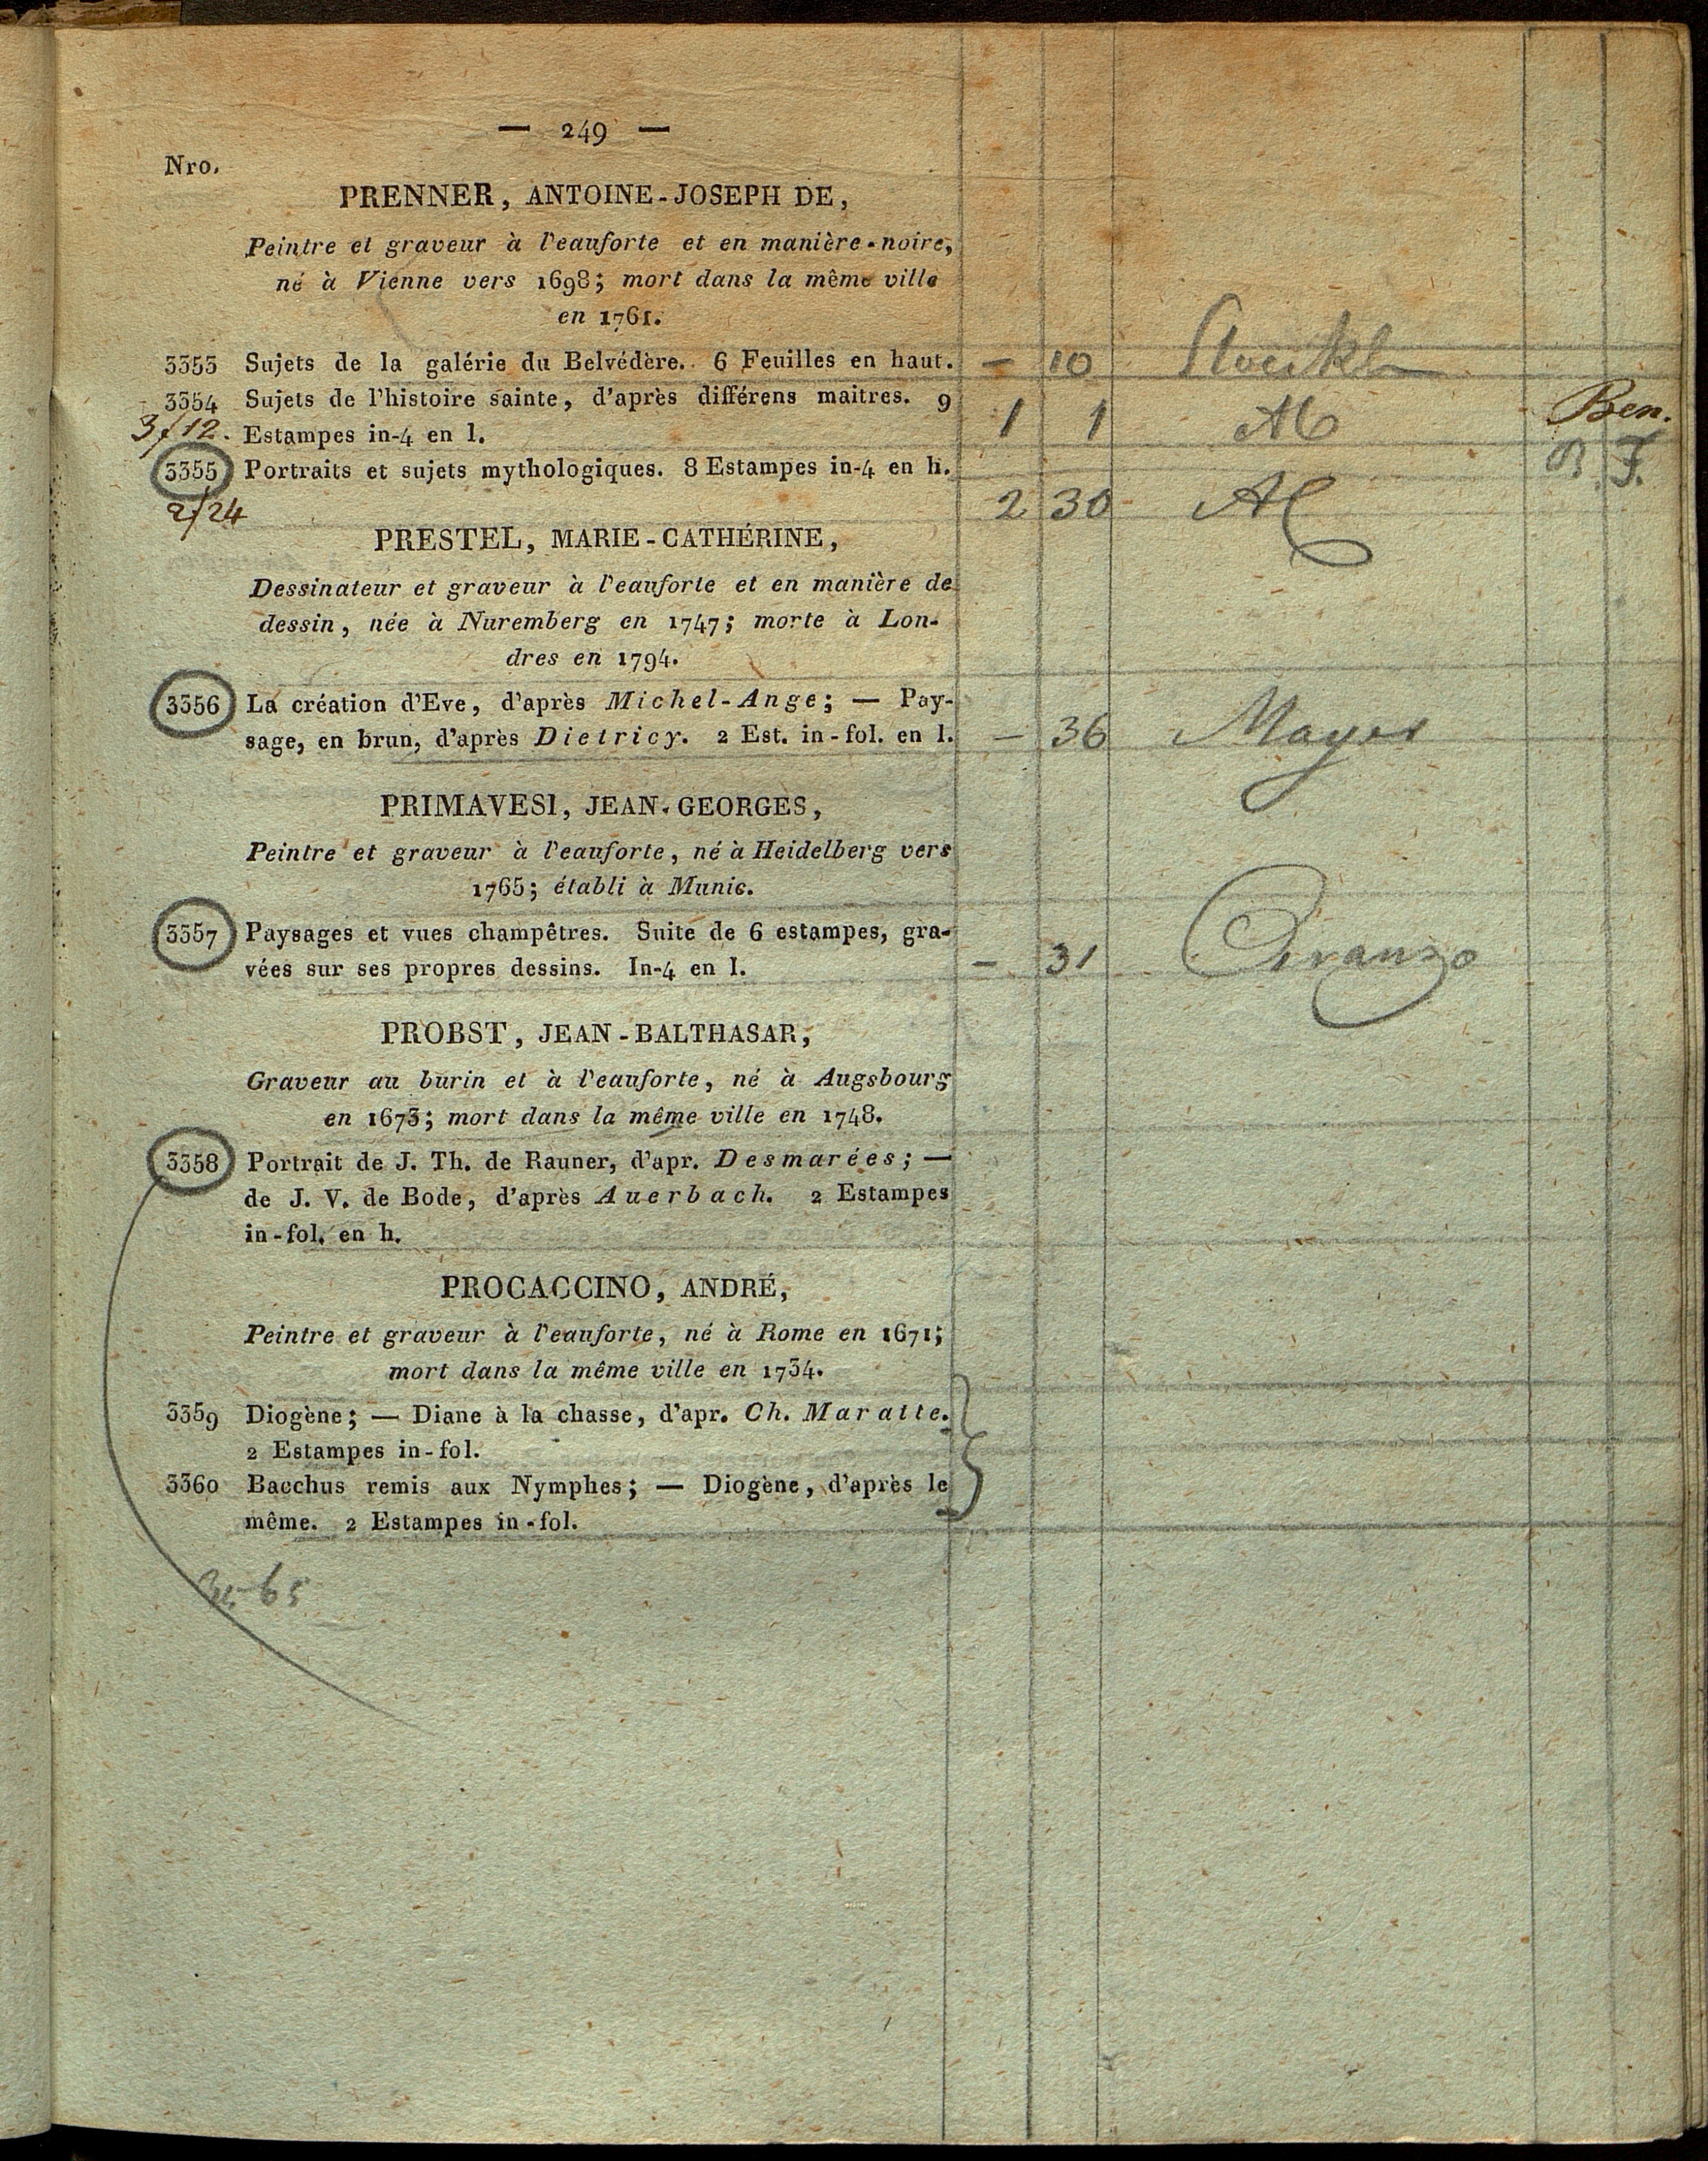 — 249 —
Nro.
PRENNER, ANTOINE-JOSEPH DE,
Peintre et graveur à l'eauforte et en manière-noire,
né à Vienne vers 1698; mort dans la même ville
en 1761.
3353 Sujets de la galérie du Belvédère. 6 Feuilles en haut. — 10
3354 Sujets de l'histoire sainte, d'après différens maitres. 9
3/12. Estampes in-4 en l. 1 1 Ben.
3355 Portraits et sujets mythologiques. 8 Estampes in-4 en h. B. F.
2/24 2 30
PRESTEL, MARIE-CATHÉRINE,
Dessinateur et graveur à l'eauforte et en manière de
dessin, née à Nuremberg en 1747; morte à Lon-
dres en 1794.
3356 La création d'Eve, d'après Michel-Ange; — Pay-
sage, en brun, d'après Dietricy. 2 Est. in-fol. en l. — 36 Mayer
PRIMAVESI, JEAN-GEORGES,
Peintre et graveur à l'eauforte, né à Heidelberg vers
1765; établi à Munic.
3357 Paysages et vues champêtres. Suite de 6 estampes, gra-
vées sur ses propres dessins. In-4 en l. — 31
PROBST, JEAN-BALTHASAR,
Graveur au burin et à l'eauforte, né à Augsbourg
en 1673; mort dans la même ville en 1748.
3358 Portrait de J. Th. de Rauner, d'apr. Desmarées; —
de J. V. de Bode, d'après Auerbach. 2 Estampes
in-fol. en h.
PROCACCINO, ANDRÉ,
Peintre et graveur à l'eauforte, né à Rome en 1671;
mort dans la même ville en 1734.
3359 Diogène; — Diane à la chasse, d'apr. Ch. Maratte.
2 Estampes in-fol.
3360 Bacchus remis aux Nymphes; — Diogène, d'après le
même. 2 Estampes in-fol.